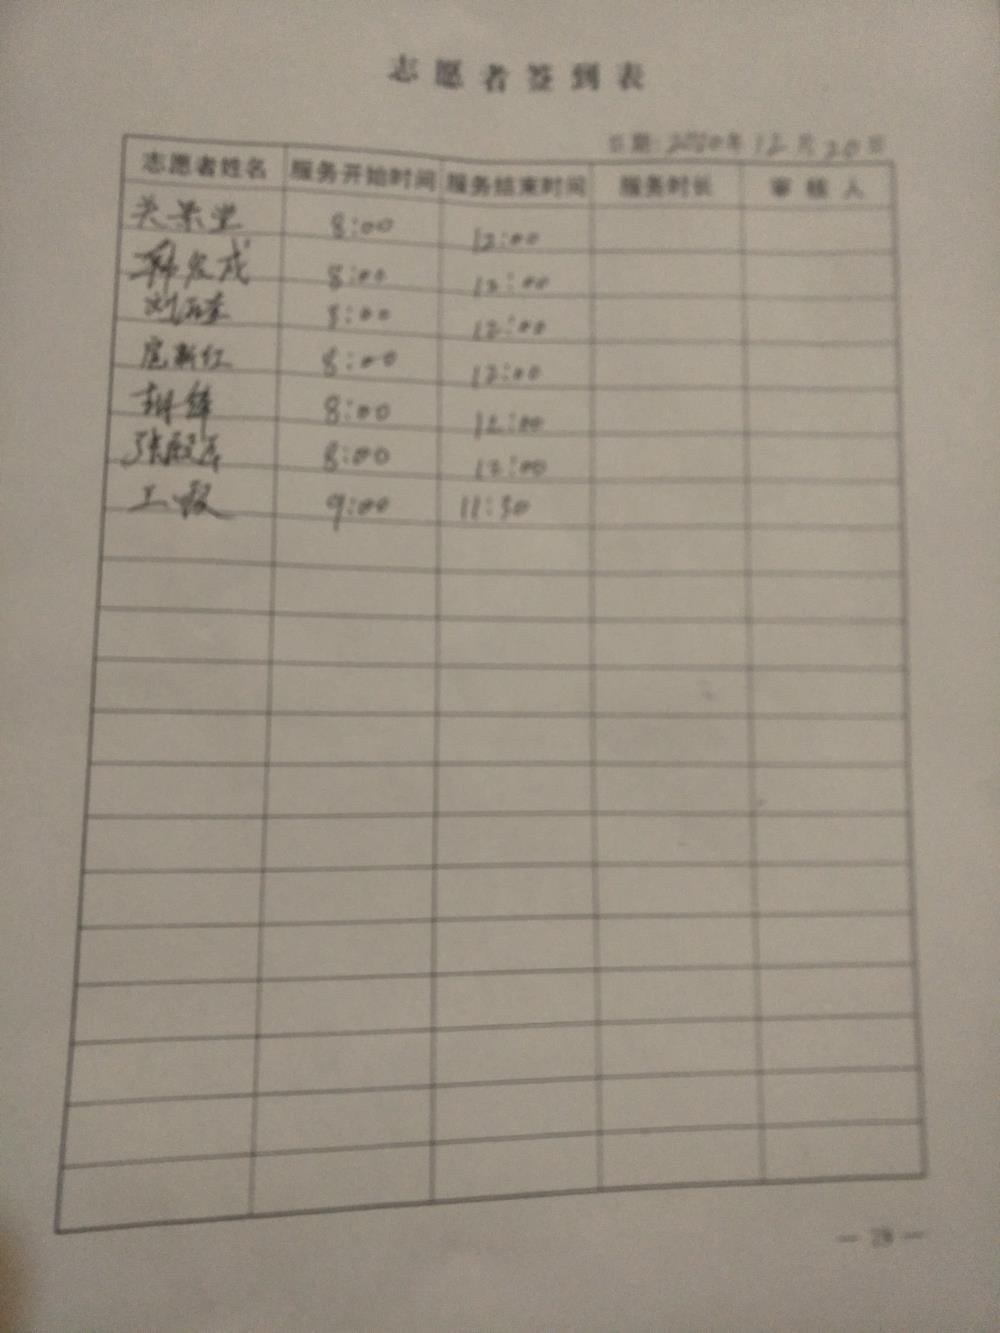 志愿者签到表
日期:2020年12月20日
志愿者姓名 服务开始时间 服务结束时间 服务时长 审核人
8:00 12:00
8:00 12:00
刘 8:00 12:00
8:00 12:00
胡锋 8:00 12:00
张殿 8:00 12:00
9:00 11:30
— 28 —